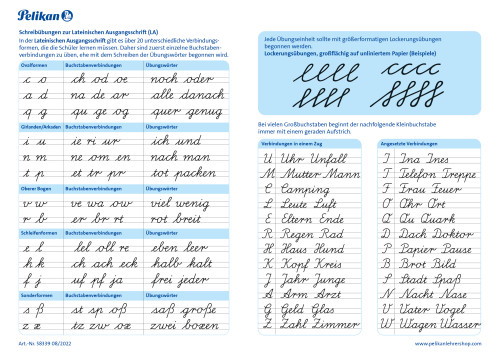 Pelikan
Schreibübungen zur Lateinischen Ausgangsschrift (LA)
In der Lateinischen Ausgangsschrift gibt es über 20 unterschiedliche Verbindungs-
formen, die die Schüler lernen müssen. Daher sind zuerst einzelne Buchstaben-
verbindungen zu üben, ehe mit dem Schreiben der Übungswörter begonnen wird.
Ovalformen Buchstabenverbindungen Übungswörter
c o ch od oe noch oder
a d na de ar alle danach
q g qu ge og quer genug
Girlanden/Arkaden Buchstabenverbindungen Übungswörter
i u ie ri ur ich und
n m ne om en nach man
t p et tr pr tot packen
Oberer Bogen Buchstabenverbindungen Übungswörter
v w ve wa ow viel wenig
r b er br rt rot breit
Schleifenformen Buchstabenverbindungen Übungswörter
e l lel oll re eben leer
h k ch ach eck halb kalt
f j uf pf ja frei jeder
Sonderformen Buchstabenverbindungen Übungswörter
s ß st sp oß saß große
z x tz zw ox zwei boxen
Art.-Nr. 58339 08/2022
Jede Übungseinheit sollte mit größerformatigen Lockerungsübungen
begonnen werden.
Lockerungsübungen, großflächig auf unliniertem Papier (Beispiele)
Bei vielen Großbuchstaben beginnt der nachfolgende Kleinbuchstabe
immer mit einem geraden Aufstrich.
Verbindungen in einem Zug Angesetzte Verbindungen
U Uhr Unfall I Ina Ines
M Mutter Mann T Telefon Treppe
C Camping F Frau Feuer
L Leute Luft O Ohr Ort
E Eltern Ende Q Qu Quark
R Regen Rad D Dach Doktor
H Haus Hund P Papier Pause
K Kopf Kreis B Brot Bild
J Jahr Junge S Stadt Spaß
A Arm Arzt N Nacht Nase
G Geld Glas V Vater Vogel
Z Zahl Zimmer W Wagen Wasser
www.pelikanlehrershop.com